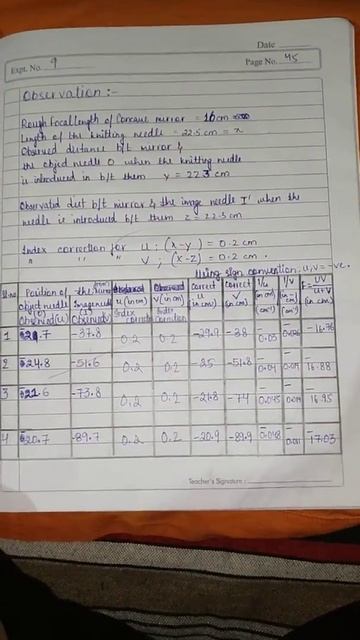 Date
Expt. No. 9
Page No. 45
Observation :-
Rough Focal length of Concave mirror = 16 cm
Length of the knitting needle = 22.5 cm = x
Observed distance b/t mirror &
the object needle O when the knitting needle
is introduced in b/t them y = 22.3 cm
Observated dist b/t mirror & the image needle I' when the
needle is introduced b/t them z = 22.5 cm
Index correction for u ; (x-y) = 0.2 cm
" " " v ; (x-z) = 0.2 cm.
Using sign convention, u, v = -ve.
Sl.no Position of object needle Observed (u) the Image needle Observed u (in cm) Index Correction v (in cm) Index Correction Correct u (in cm) Correct v (in cm) 1/u (in cm) (cm⁻¹) 1/v (in cm) (cm⁻¹) F = uv/u+v (in cm)
1 .7 -37.8 0.2 0.2 -29.9 -38 -0.03 -16.76
2 24.8 -51.6 0.2 0.2 -25 -51.8 -0.04 -16.88
3 21.6 -73.8 0.2 0.2 -21.8 -74 -0.045 -16.95
4 20.7 -89.7 0.2 0.2 -20.9 -89.9 -0.048 -0.011 -17.03
Teacher's Signature :